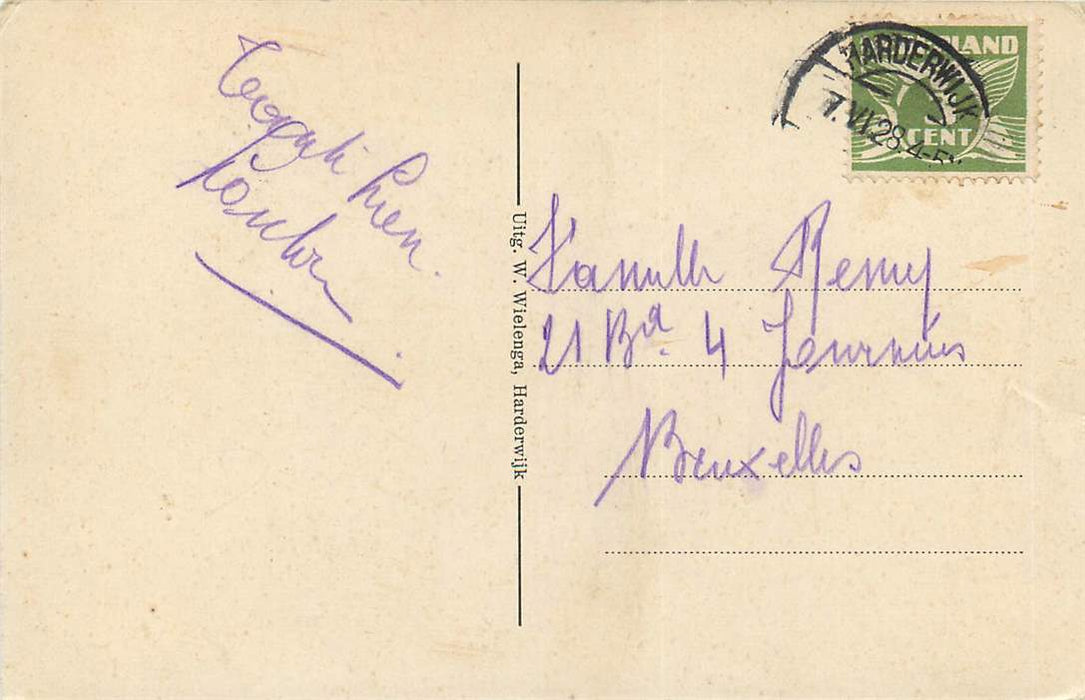 NEDERLAND
CENT
HARDERWIJK
7.VI.28.4-5
bien.
Uitg. W. Wielenga, Harderwijk
Famille Remy
21 Bd. 4 Journées
Bruxelles